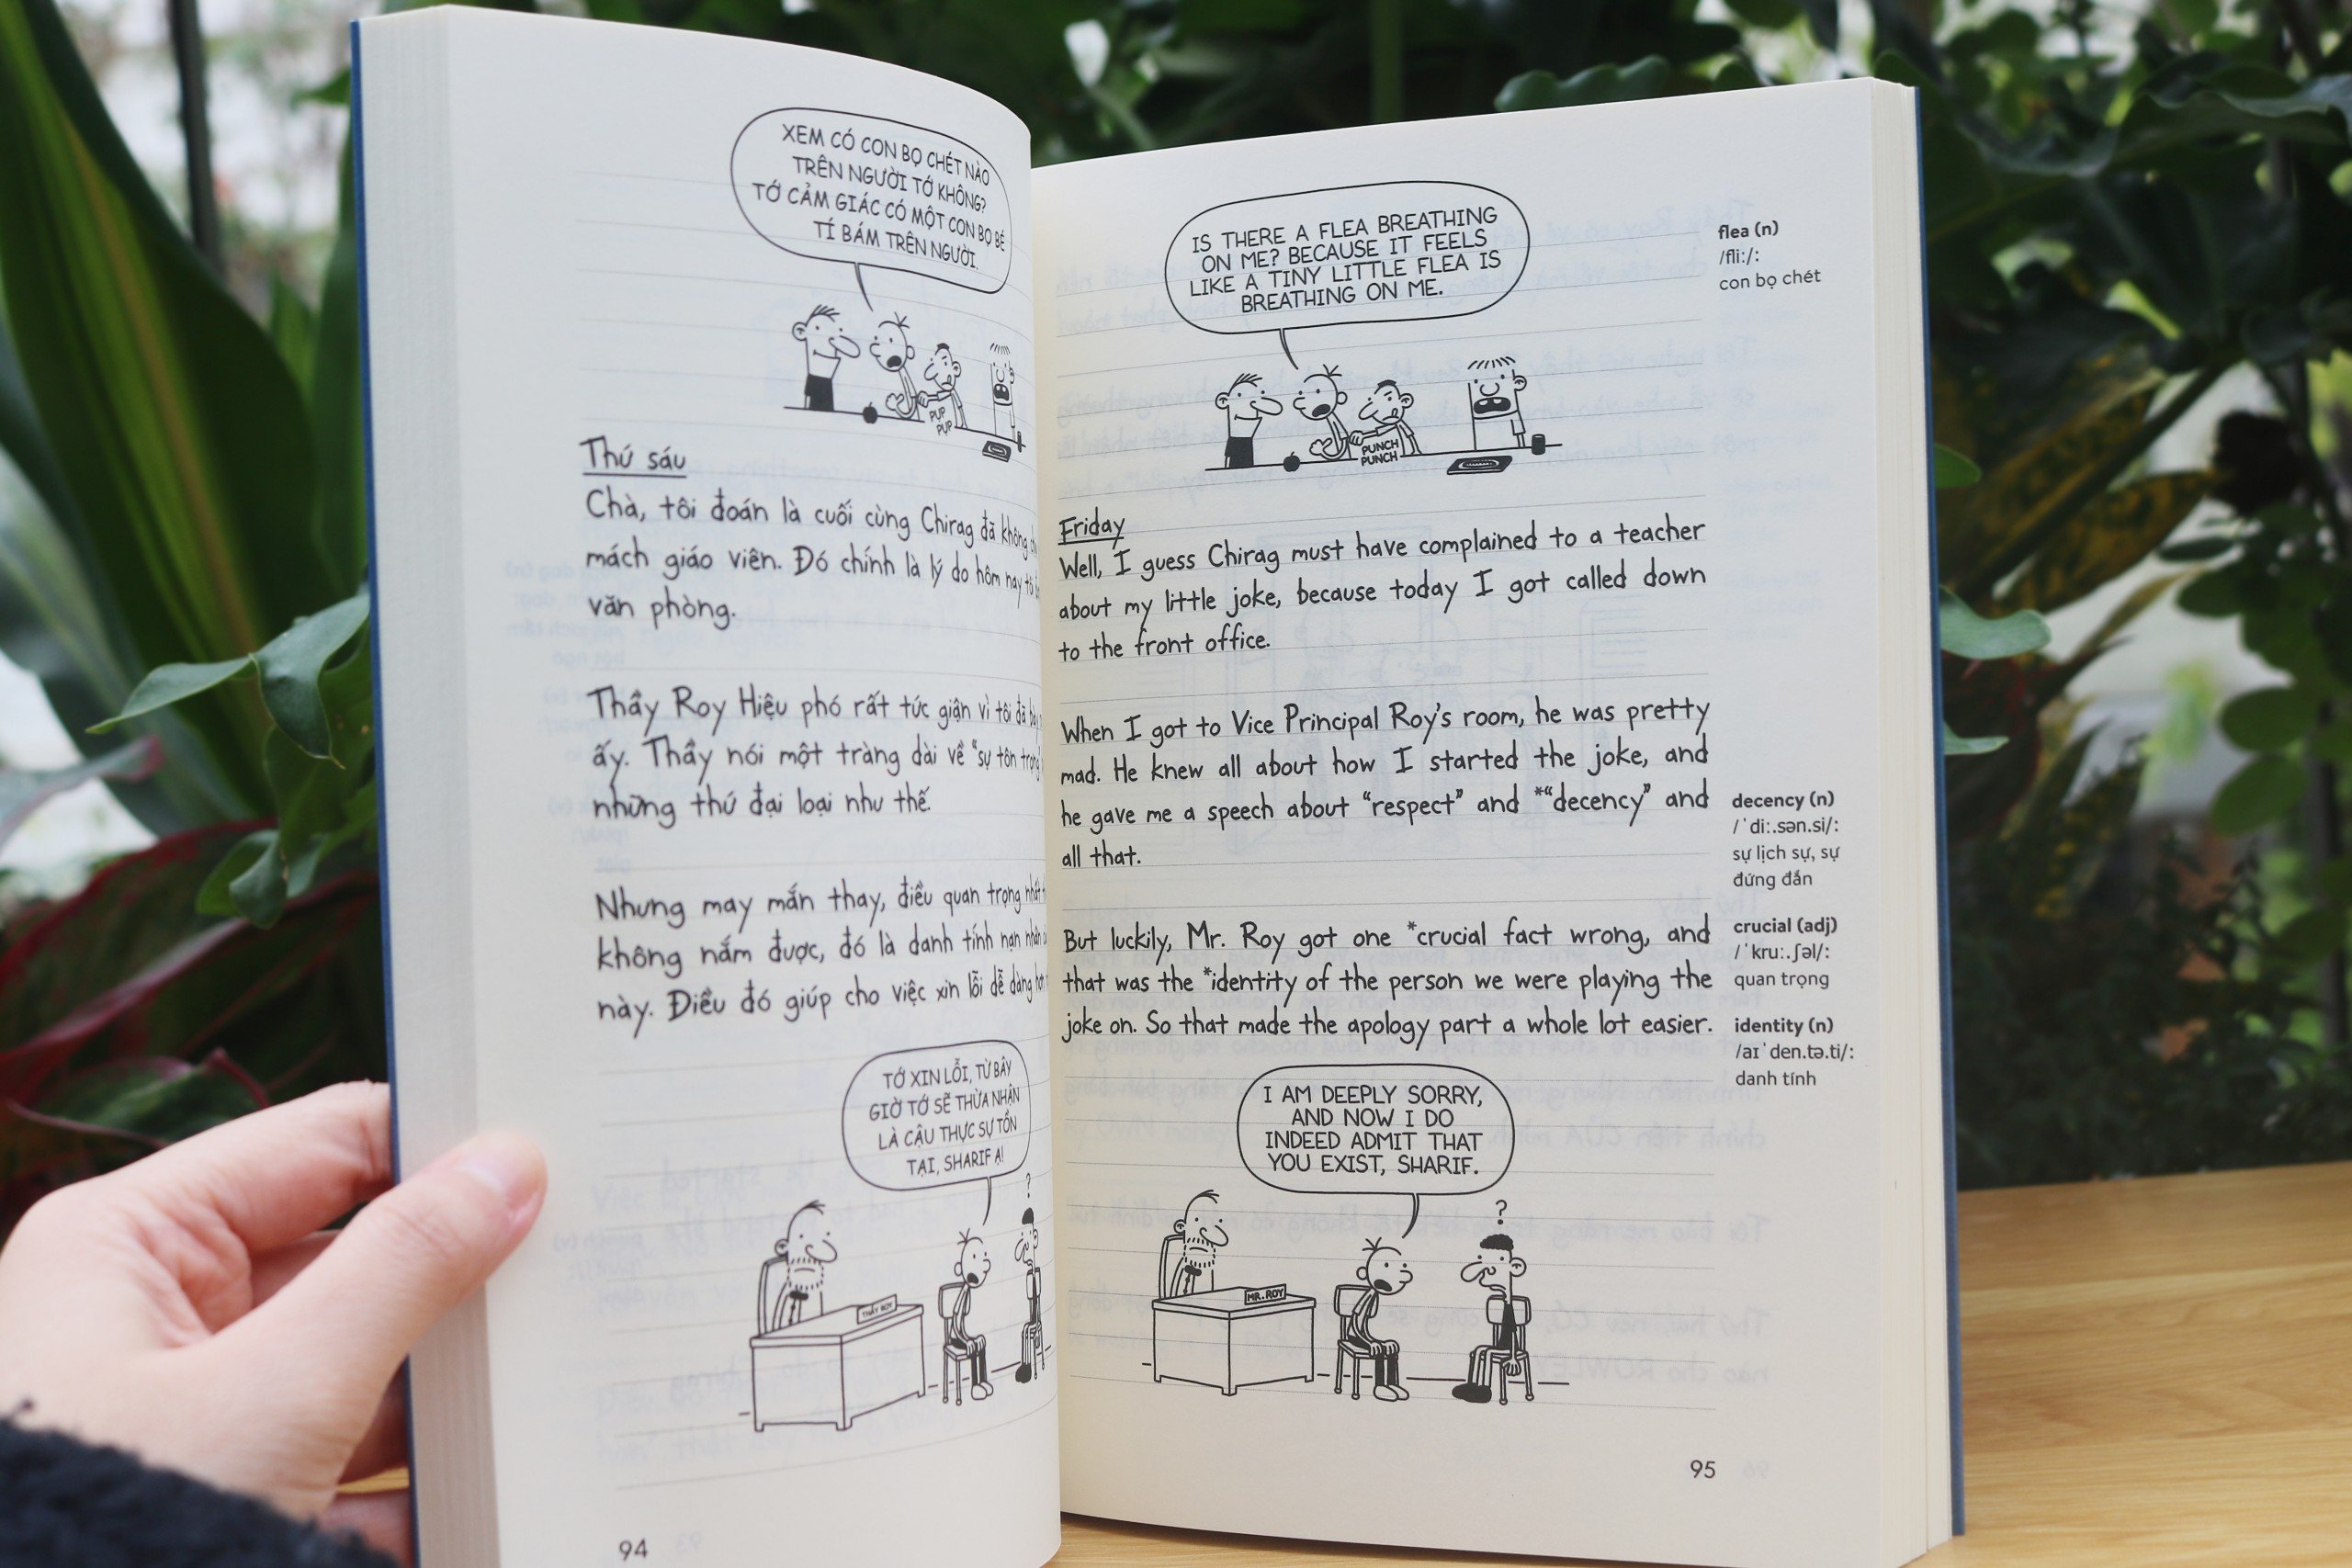 XEM CÓ CON BỌ CHÉT NÀO
TRÊN NGƯỜI TỚ KHÔNG?
TỚ CẢM GIÁC CÓ MỘT CON BỌ BÉ
TÍ BÁM TRÊN NGƯỜI.
PUP
PUP
Thứ sáu
Chà, tôi đoán là cuối cùng Chirag đã không
mách giáo viên. Đó chính là lý do hôm nay
văn phòng.
Thầy Roy Hiệu phó rất tức giận vì tôi đã
ấy. Thầy nói một tràng dài về "sự tôn trọng"
những thứ đại loại như thế.
Nhưng may mắn thay, điều quan trọng nhất
không nắm được, đó là danh tính nạn nhân
này. Điều đó giúp cho việc xin lỗi dễ dàng hơn
TỚ XIN LỖI, TỪ BÂY
GIỜ TỚ SẼ THỪA NHẬN
LÀ CẬU THỰC SỰ TỒN
TẠI, SHARIF Ạ!
?
THẦY ROY
94
IS THERE A FLEA BREATHING
ON ME? BECAUSE IT FEELS
LIKE A TINY LITTLE FLEA IS
BREATHING ON ME.
flea (n)
/fliː/:
con bọ chét
PUNCH
PUNCH
Friday
Well, I guess Chirag must have complained to a teacher
about my little joke, because today I got called down
to the front office.
When I got to Vice Principal Roy's room, he was pretty
mad. He knew all about how I started the joke, and
he gave me a speech about "respect" and *"decency" and
all that.
decency (n)
/ˈdiː.sən.si/:
sự lịch sự, sự
đứng đắn
But luckily, Mr. Roy got one *crucial fact wrong, and
that was the *identity of the person we were playing the
joke on. So that made the apology part a whole lot easier.
crucial (adj)
/ˈkruː.ʃəl/:
quan trọng
identity (n)
/aɪˈden.tə.ti/:
danh tính
I AM DEEPLY SORRY,
AND NOW I DO
INDEED ADMIT THAT
YOU EXIST, SHARIF.
?
MR. ROY
95